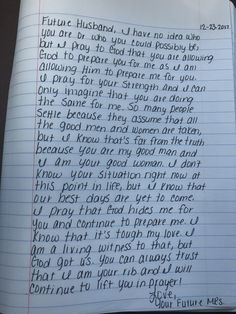 12-23-2017
Future Husband, I have no idea who
you are or who you could possibly be,
but I pray to God that you are allowing
God to prepare you for me as I am
allowing Him to prepare me for you.
I pray for your strength and I can
only imagine that you are doing
the same for me. So many people
settle because they assume that all
the good men and women are taken,
but I know that's far from the truth
because you are my good man and
I am your good woman. I don't
know your situation right now at
this point in life, but I know that
our best days are yet to come.
I pray that God hides me for
you and continue to prepare me. I
know that it's tough my love. I
am a living witness to that, but
God got us. You can always trust
that I am your rib and I will
continue to lift you in prayer!
Love,
Your Future Mrs.